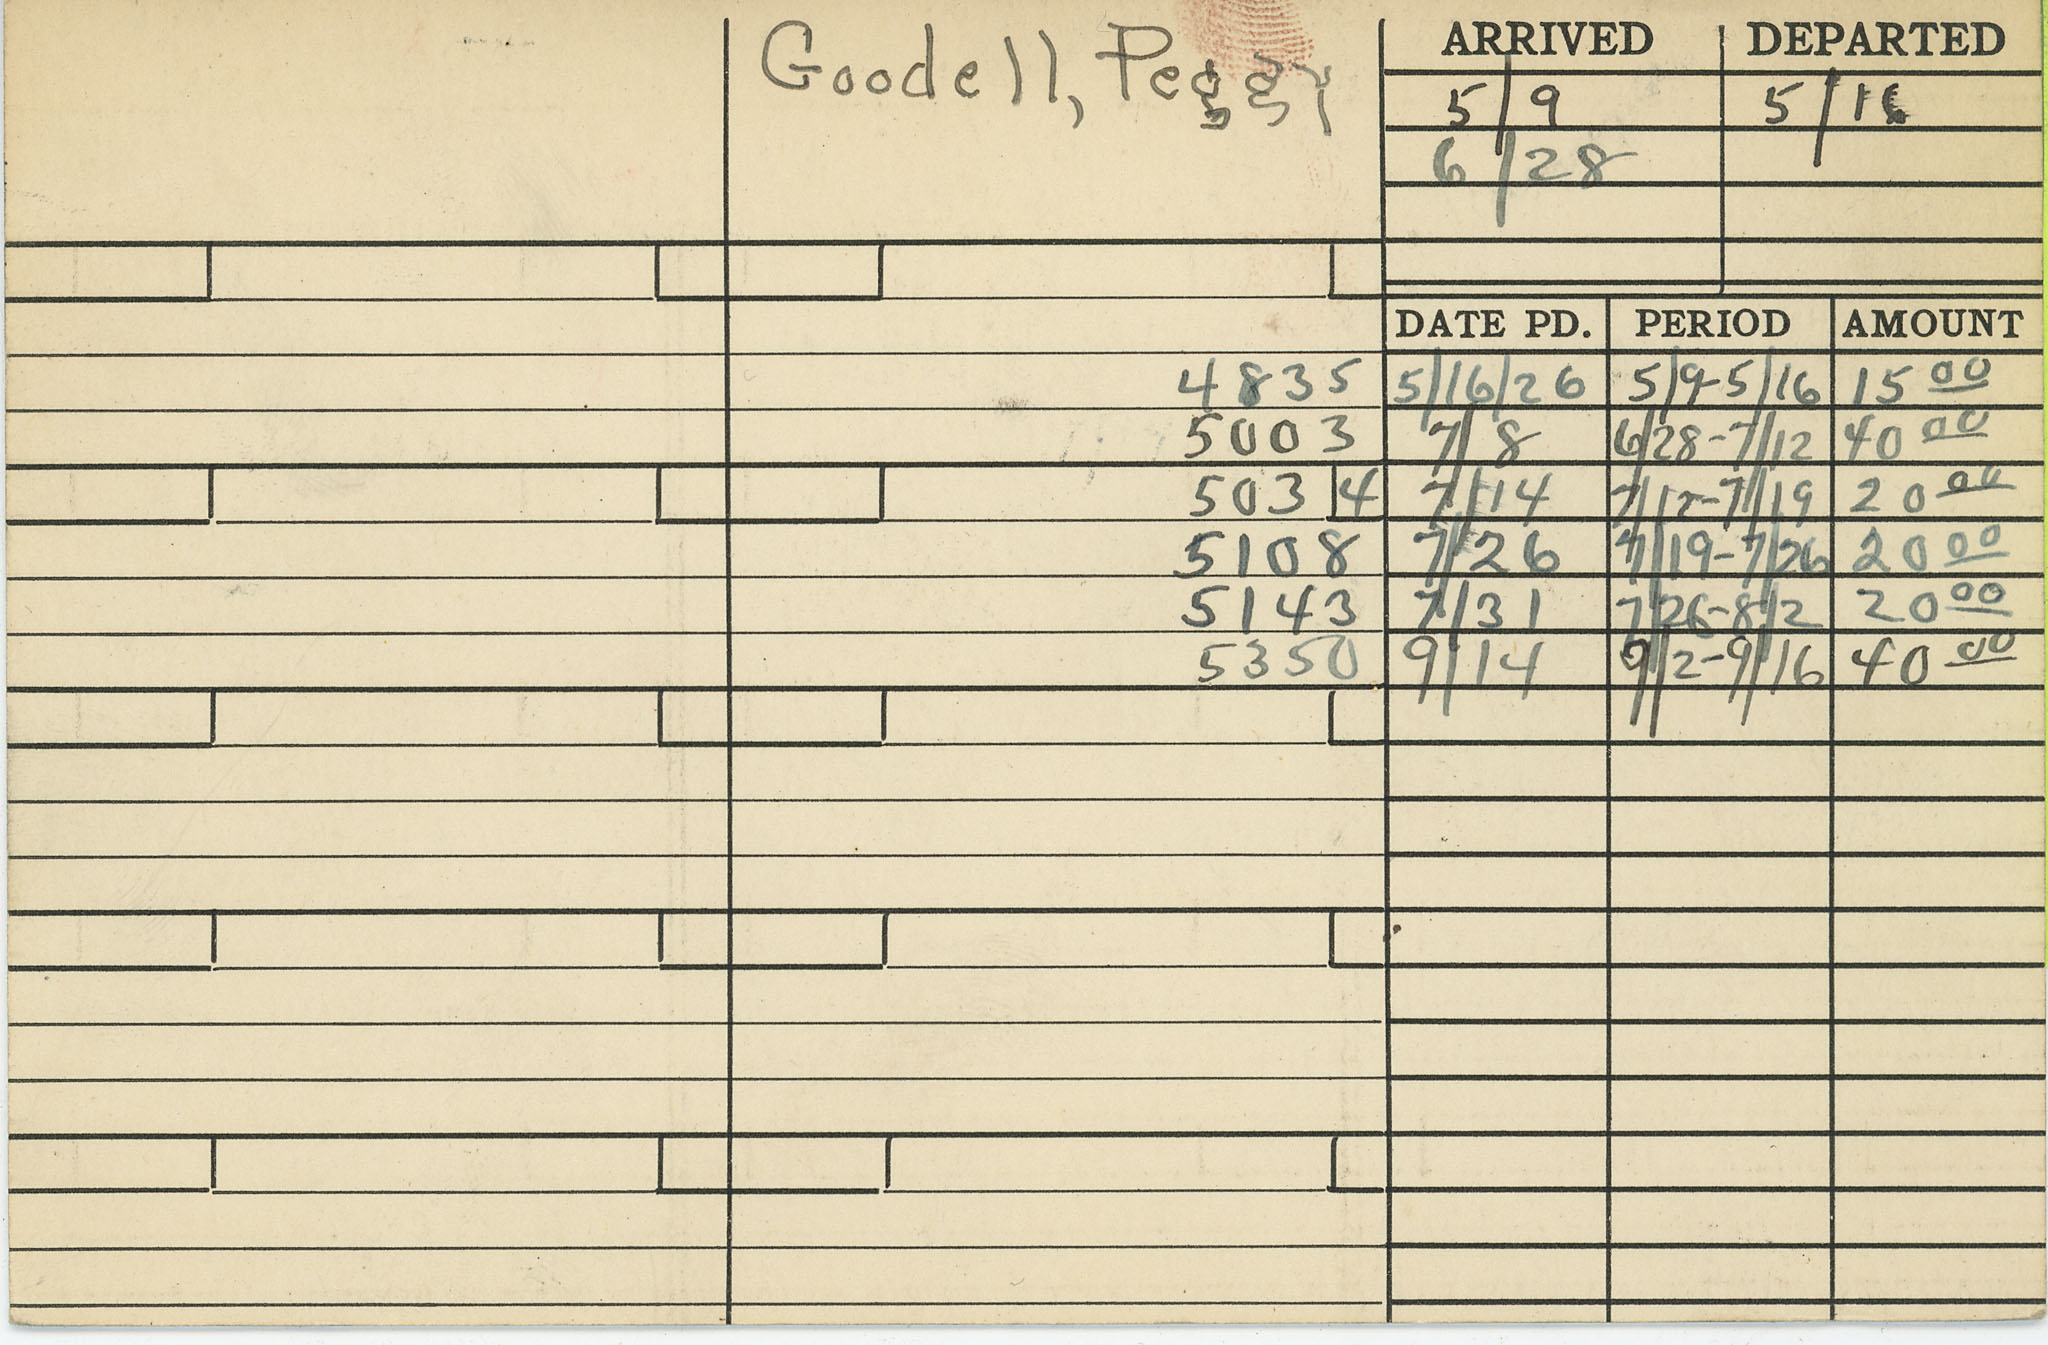 Goodell, Peggy
ARRIVED DEPARTED
5/9 5/16
6/28
DATE PD. PERIOD AMOUNT
4835 5/16/26 5/9-5/16 15 00
5003 7/8 6/28-7/12 40 00
5034 7/14 7/12-7/19 20 00
5108 7/26 7/19-7/26 20 00
5143 7/31 7/26-8/2 20 00
5350 9/14 9/2-9/16 40 00